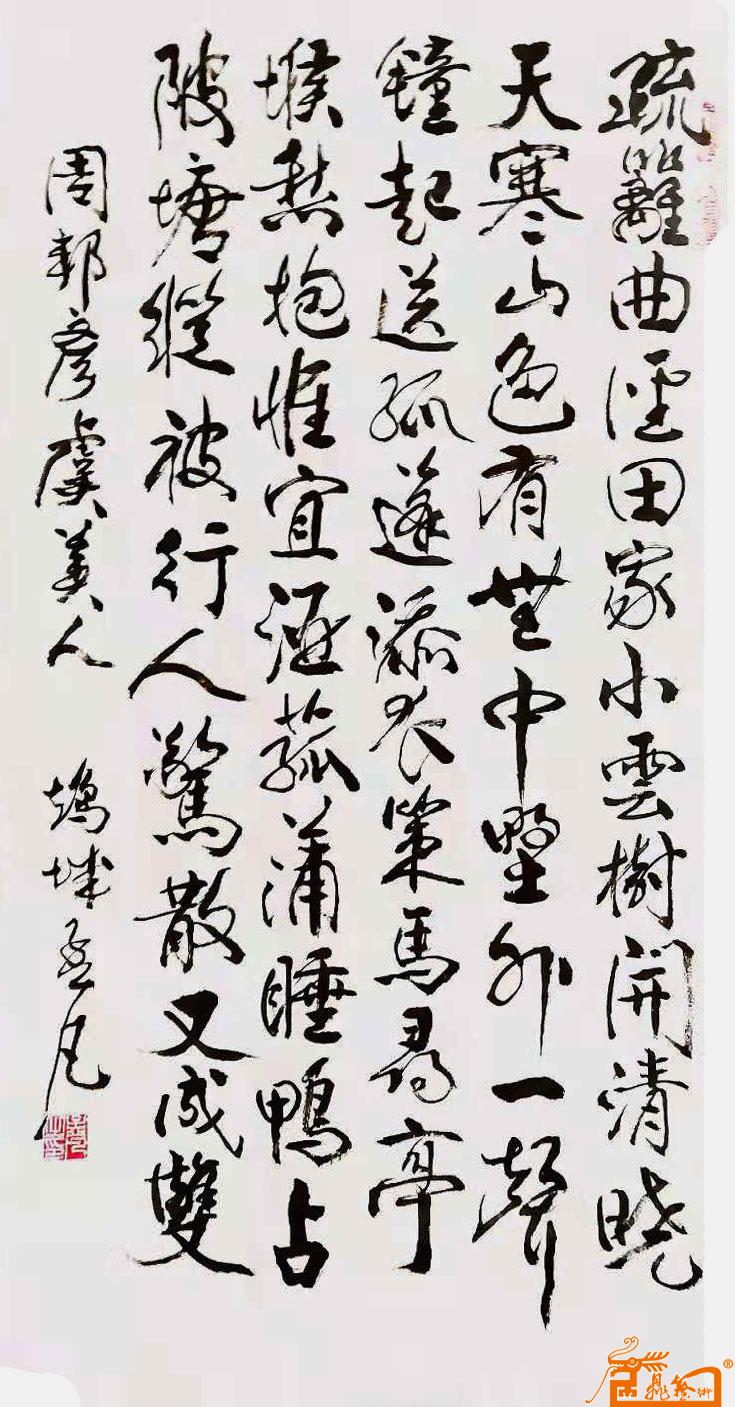 疏籬曲徑田家小雲樹開清曉
天寒山色有無中野外一聲
鐘起送孤蓬添衣策馬尋亭
堠愁抱惟宜酒菰蒲睡鴨占
陂塘縱被行人驚散又成雙
周邦彥虞美人 城孟凡